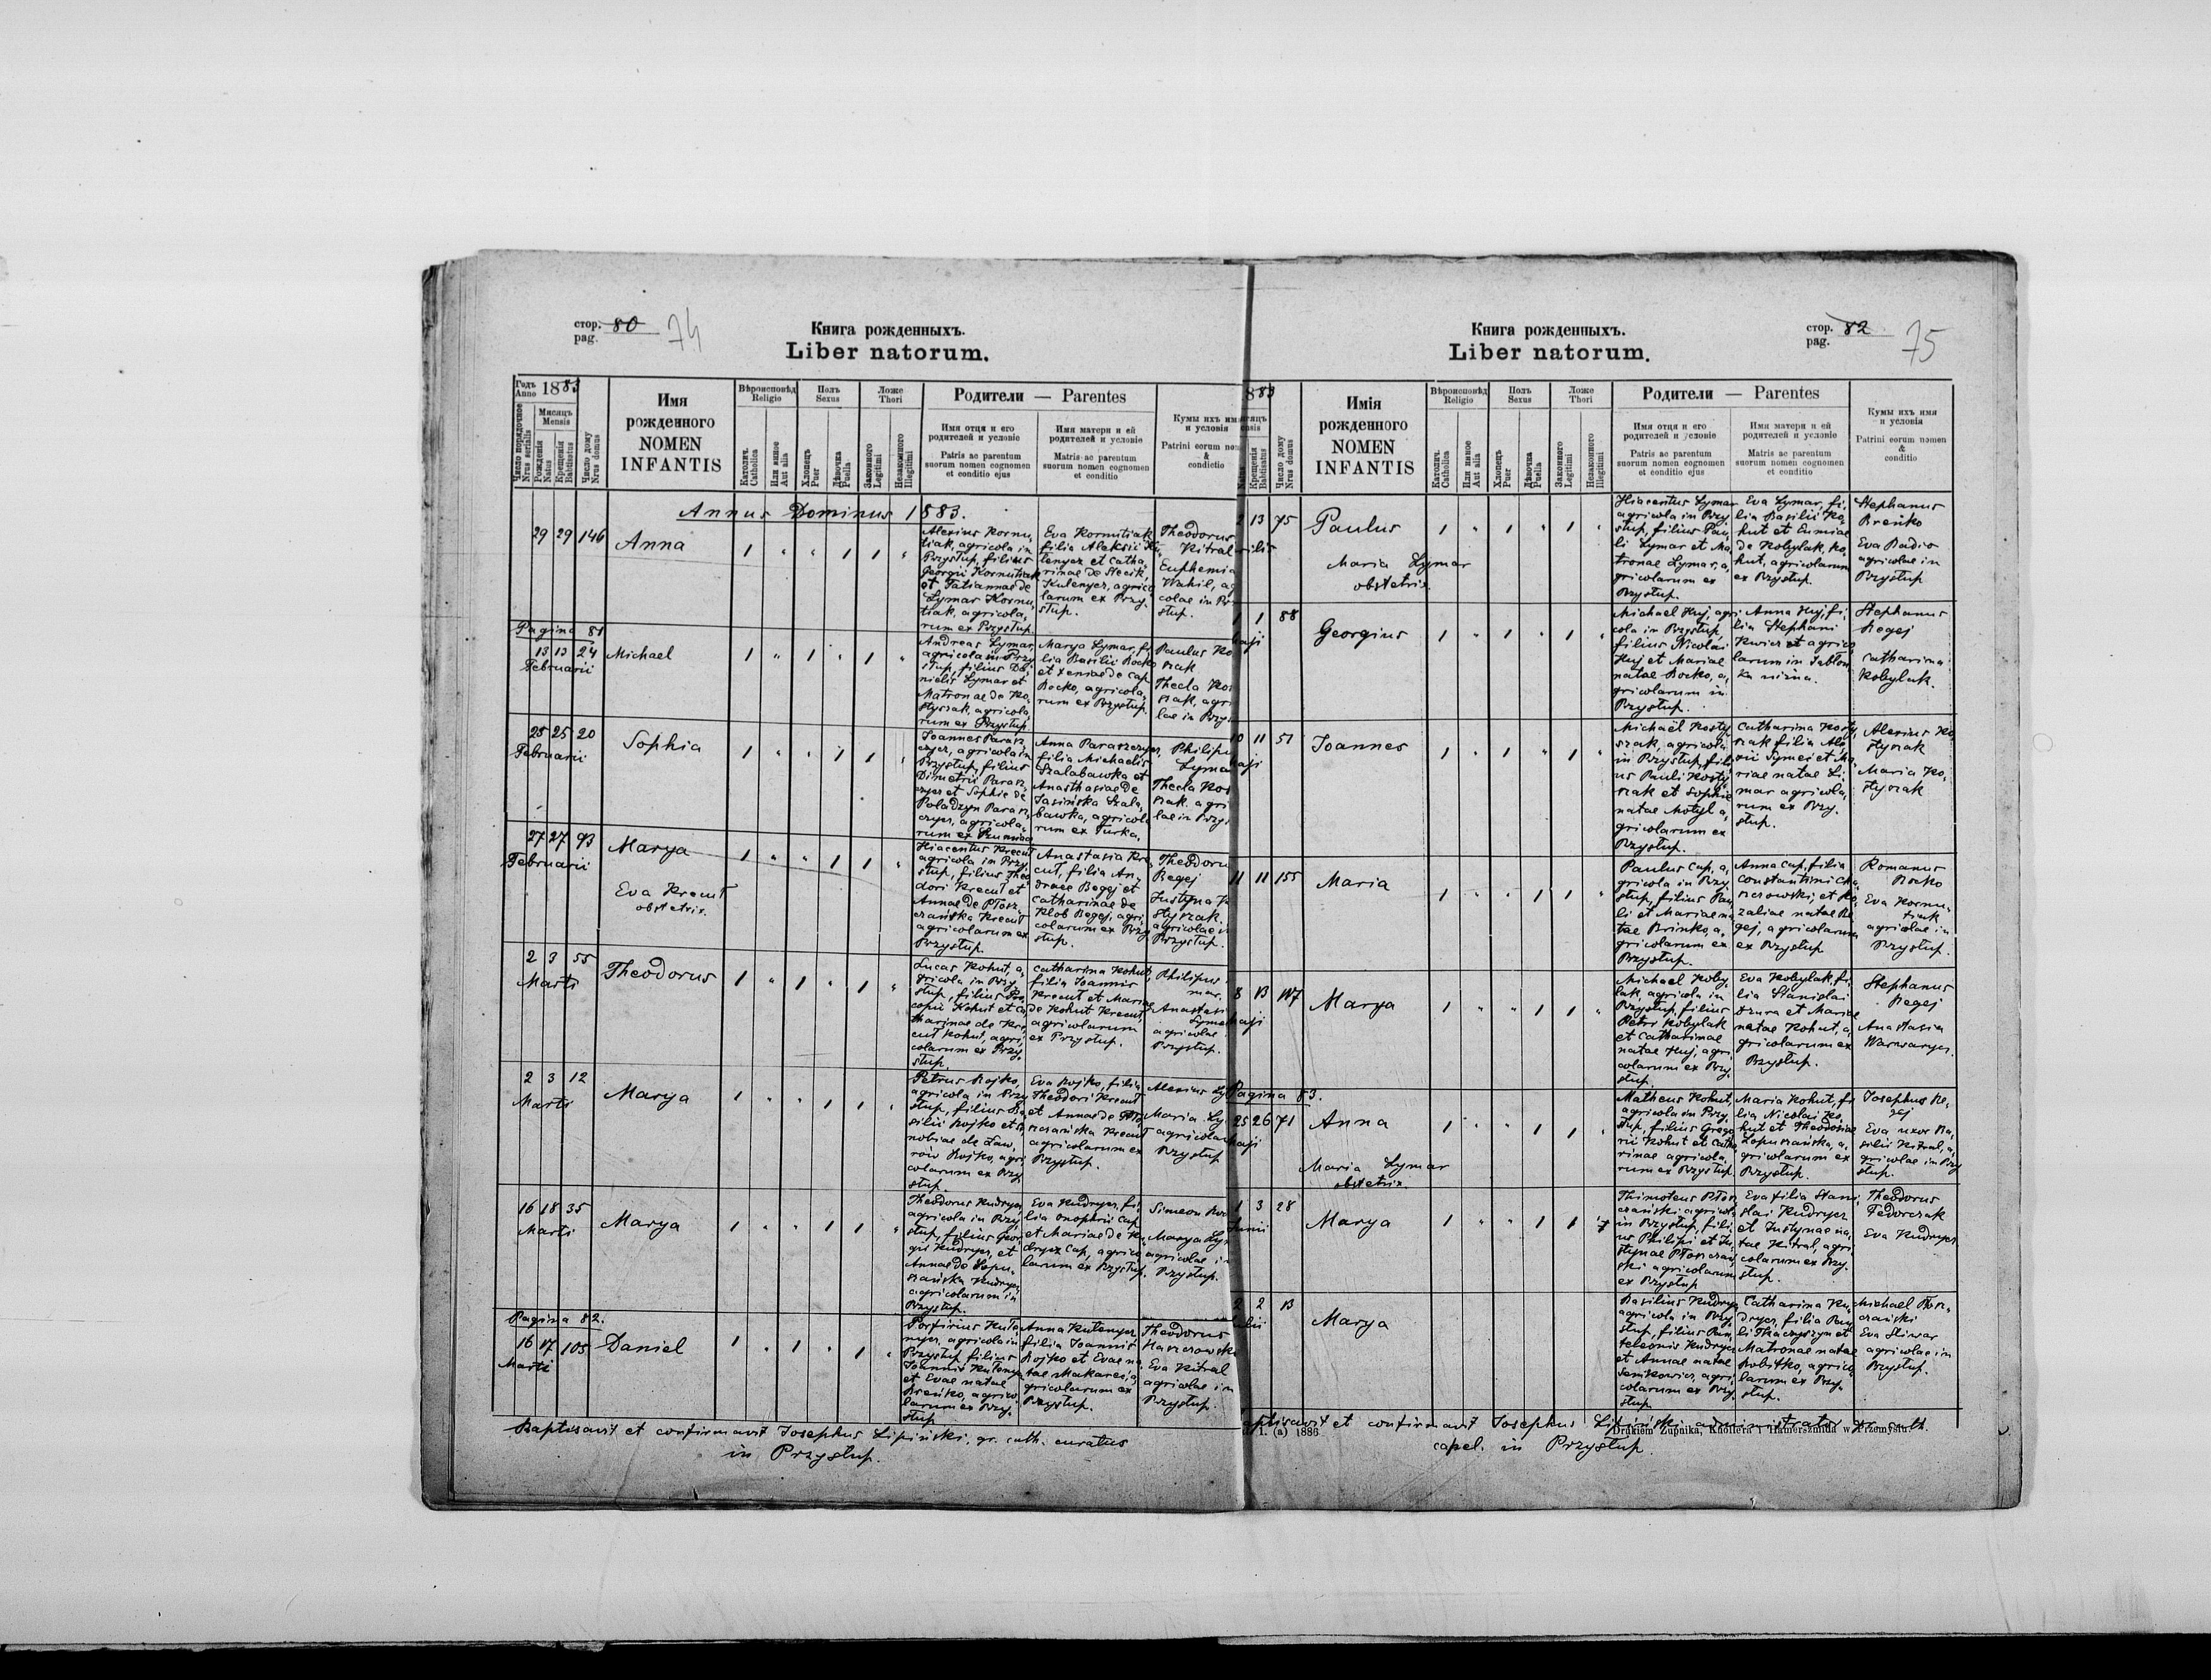 стор. 80 74
pag.
Книга рожденныхъ.
Liber natorum.
Годъ 1883
Anno
Число порядочное
Nrus serialis
Мисяць
Mensis
Рожденія
Natus
Крещенія
Babtisatus
Число дому
Nrus domus
Имя
рожденного
NOMEN
INFANTIS
Вѣроисповѣд
Religio
Католич.
Catholica
Или инное
Aut alia
Полъ
Sexus
Хлопець
Puer
Дѣвочка
Puella
Ложе
Thori
Законного
Legitimi
Незаконного
Illegitimi
Родители — Parentes
Имя отця и его
родителей и условіе
Patris ac parentum
suorum nomen cognomen
et conditio ejus
Имя матери и ей
родителей и условіе
Matris ac parentum
suorum nomen cognomen
et conditio
Кумы ихъ имя
и условія
Patrini eorum nomen
&
condictio
Annus Dominus 1883.
29 29 146 Anna
Alexius Kornu,
tiak, agricola in
Przysłup, filius
Georgii Kornutiak
et Tatiannae de
Lymar Kornu,
tiak, agricola,
rum ex Przysłup.
Eva Kornutiak
filia Aleksii Ku,
tenyez et Catha,
rinae de Stecik,
Kulenyez, agrico
larum ex Przy,
słup.
Theodorus
Kitral
Euphemia
Wahil, ag
colae in Prz
słup.
Pagina 81
13 13 24 Michael
Februarii
Andreas Lymar,
agricola in Przy
słup, filius Da
nielis Lymar et
Matronae de Ko,
styszak, agricola,
rum ex Przysłup
Marya Lymar, fi
lia Basilii Bocko
et Xeniae de Cap
Bocko, agricola,
rum ex Przysłup.
Paulus Ko
Thecla
agri
lae in Przys
25 25 20 Sophia
Februarii
Joannes Parasz
czyez, agricola in
Przysłup, filius
Dimetrii Parasz
czyez et Sophie de
Poladzyn Parasz,
czyez, agricola,
rum ex
Anna Paraszczyez,
filia Michaelis
Szalabawka et
Anasthasiae de
Jasińska Szala,
bawka, agricola
rum ex Turka.
Philipus
Lymar
Thecla
agri
lae in Przys
27 27 93 Marya
Februarii
Eva Krecut
obstetrix.
Hiacentus Krecut
agricola in Przy
słup, filius Theo
dori Krecut et
Annae de Płosz,
czańska Krecut
agricolarum ex
Przysłup.
Anastasia Kre,
cut, filia An,
dreae Begej et
Catharinae de
Klob Begej, agri
colarum ex Przy
słup.
Theodoru
Begej
Justyna K
styszak.
agricolae i
Przysłup.
2 3 55 Theodorus
Marti
Lucas Kohut, a,
gricola in Przy
słup, filius Pro
copii Kohut et Ca
tharinae de Kre,
cut Kohut, agri
colarum ex Przy
słup.
Catharina Kohut,
filia Joannis
Krecut et Mariae
de Kohut Krecut,
agricolarum
ex Przysłup.
Philipus
mar.
Anastasi
Lyma
agricolae
Przysłup.
2 3 12 Marya
Marti
Petrus Bojko,
agricola in Przy
słup, filius Ba
silii Bojko et
de Law,
rów Bojko, agri
colarum ex Przy
słup.
Eva Bojko, filia
Theodori Krecut
et Annae de Pło,
szczańska Krecut
agricolarum ex
Przysłup.
Alexius Ly
Maria Ly
agricolae
Przysłup
16 18 35 Marya
Marti
Theodorus Kudryez,
agricola in Przy
słup, filius Geor
gii Kudryez, et
Annae de Łopu,
szańska Kudryez
agricolarum in
Przysłup.
Eva Kudryez, fi,
lia Onophrii Cap
et Mariae de Ku,
dryez Cap, agrico
larum ex Przysłup.
Simeon
Marya Lym
agricolae i
Przysłup.
Pagina 82.
16 17 105 Daniel
Marti
Porfirius Kułe,
nyez, agricola in
Przysłup filius
Joannis Kułenyez
et Evae natae
Breńko, agrico
larum ex Przy,
słup
Anna Kutenyez,
filia Joannis
Bojko et Evae na
tae Makarei a
gricolarum ex
Przysłup.
Theodorus
Eva Kitral
agricolae in
Przysłup.
Baptisavit et confirmavit Josephus Lipiński, gr. cath. curatus
in Przysłup.
стор. 82 75
pag.
Книга рожденныхъ.
Liber natorum.
883
Natus
Крещенія
Babtisatus
Число дому
Nrus domus
Имія
рожденного
NOMEN
INFANTIS
Вѣроисповѣд
Religio
Католич.
Catholica
Или инное
Aut alia
Полъ
Sexus
Хлопець
Puer
Дѣвочка
Puella
Ложе
Thori
Законного
Legitimi
Незаконного
Illegitimi
Родители — Parentes
Имя отця и его
родителей и условіе
Patris ac parentum
suorum nomen cognomen
et conditio ejus
Имя матери и ей
родителей и условіе
Matris ac parentum
suorum nomen cognomen
et conditio
Кумы ихъ имя
и условія
Patrini eorum nomen
&
conditio
2 13 75 Paulus
rilis
Maria Lymar
obstetrix.
Hiacentus Lymar
agricola in Przy,
słup, filius Pau
li Lymar et Ma
tronae Lymar, a,
gricolarum ex
Przysłup.
Eva Lymar, fi,
lia Basilii Ko,
hut et Eumiae
de Kobylak, Ko,
hut, agricolarum
ex Przysłup.
Stephanus
Breńko
Eva Badio
agricolae in
Przysłup
1 1 88 Georgius
Maji
Michael Huj, agri
cola in Przysłup,
filius Nicolai
Huj et Mariae
natae Bocko, a,
gricolarum in
Przysłup.
Anna Huj, fi,
lia Stephani
Kwicz et agrico
larum in Jabłon
ka niżna.
Stephanus
Begej
Catharina
Kobylak.
10 11 51 Joannes
Maji
Michaël Kosty
szak, agricola
in Przysłup, fili
us Pauli Kosty
szak et Sophie
natae Motyl a,
gricolarum ex
Przysłup.
Catharina Kosty,
szak filia Ale
xii Symei et Ma,
riae natae Li,
mar agricola,
rum ex Przy,
słup.
Alexius Ko,
styszak
Maria Ko,
styszak
11 11 155 Maria
Paulus Cap, a,
gricola in Przy,
słup, filius Pau,
li et Mariae na
tae Brinko, a,
gricolarum ex
Przysłup.
Anna Cap, filia
Constantini Cha,
szczowski, et Ro,
zaliae natae Be
gej, agricolarum
ex Przysłup
Romanus
Bocko
Eva Kornu-
tiak
agricolae in
Przysłup.
8 13 107 Marya
Maji
Michael Koby,
lak, agricola in
Przysłup, filius
Petri Kobylak
et Catharinae
natae Huj, agri
colarum ex Przy,
słup.
Eva Kobylak, fi,
lia Stanislai
Dzura et Mariae
natae Kohut, a,
gricolarum ex
Przysłup.
Stephanus
Begej
Anastasia
Warwaryez.
Pagina 83.
25 26 71 Anna
Maji
Maria Lymar
obstetrix.
Matheus Kohut,
agricola in Przy,
słup, filius Grego
rii Kohut et Catha
rinae agricola,
rum ex Przysłup
Maria Kohut, fi
lia Nicolai Ko,
hut et Theodosiae
Łopuszańska, a,
gricolarum ex
Przysłup.
Josephus Be,
gej
Eva uxor Ba,
silii Kitral, a,
gricolae in Przy
słup.
1 3 28 Marya
Junii
Thimoteus Płosz
czański agricola
in Przysłup, fili,
us Philipi et Ju
stynae Płoszczań
ski agricolarum
ex Przysłup
Eva filia Stani,
slai Kudryez
et Justynae na,
tae Kitral, agri
colarum ex Przy.
słup.
Theodorus
Fedorczak
Eva Kudryez
2 2 13 Marya
Julii
Basilius Kudryez
agricola in Przy
słup, filius Pan,
teleonis Kudryez
et Annae natae
Senkowicz, agri
colarum ex Przy
słup.
Catharina Ku,
dryez, filia Pau
li Tkaczyszyn et
Matronae natae
agrico
larum ex Przy,
słup.
Michael Płosz-
czański
Eva Sliwar
agricolae in
Przysłup.
aptisavit et confirmavit Josephus Lipiński administrator gr. cath.
1. (a) 1886
Drukiem Żupnika, Knollera i Hamerszmida w Przemyślu.
capel. in Przysłup.